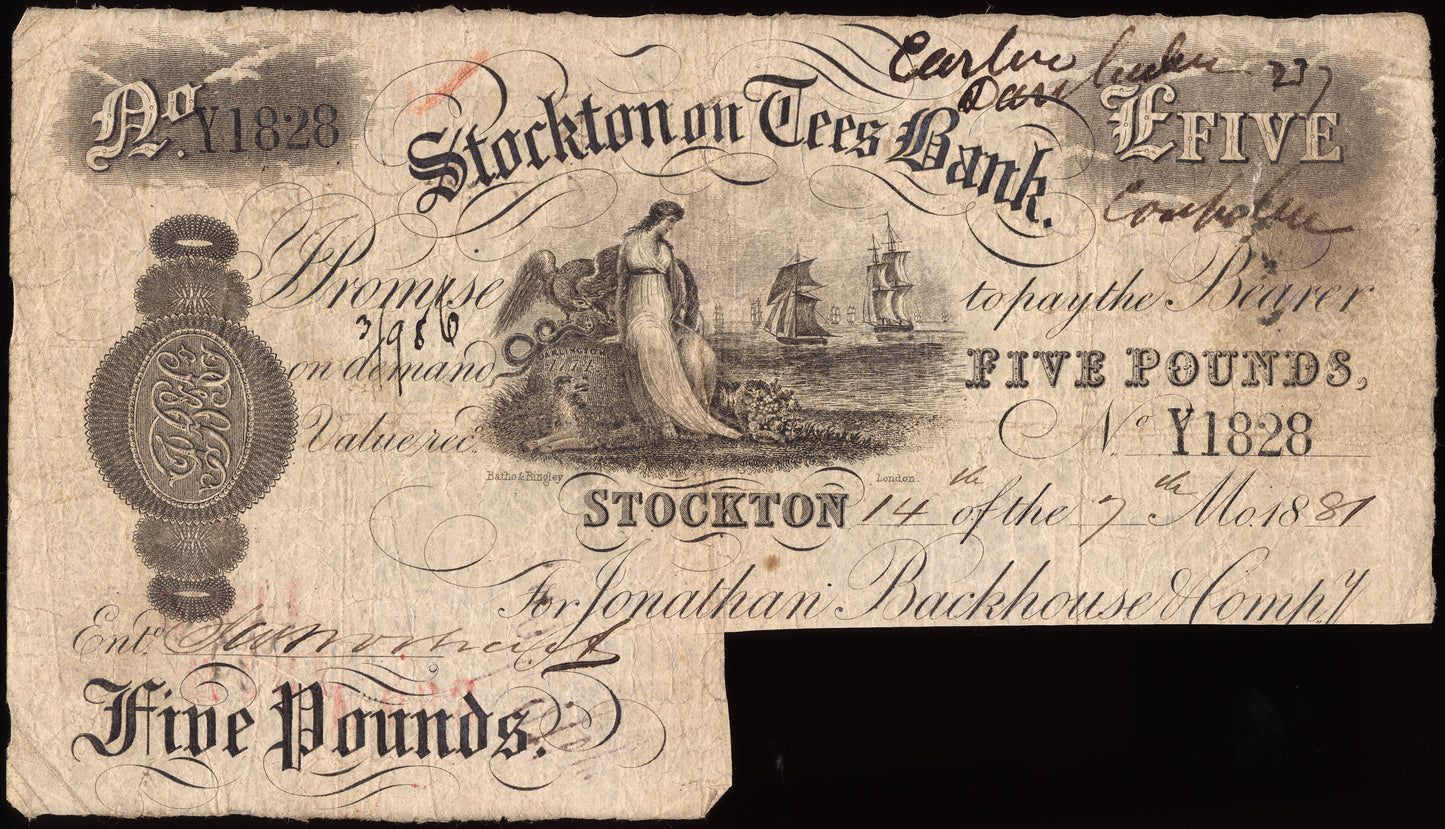 No. Y1828
Stockton on Tees Bank.
£FIVE
I Promise to pay the Bearer
on demand FIVE POUNDS,
3/986
DARLINGTON
1774
Value recd. No Y1828
Batho & Bingley London.
STOCKTON 14th of the 7th Mo. 1881
For Jonathan Backhouse & Compy
Entd.
Five Pounds.